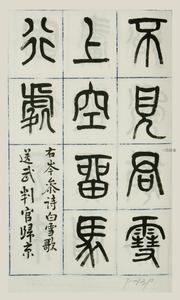 不見君雪
上空畱馬
行處
右岑叅诗白雪歌
送武判官歸京